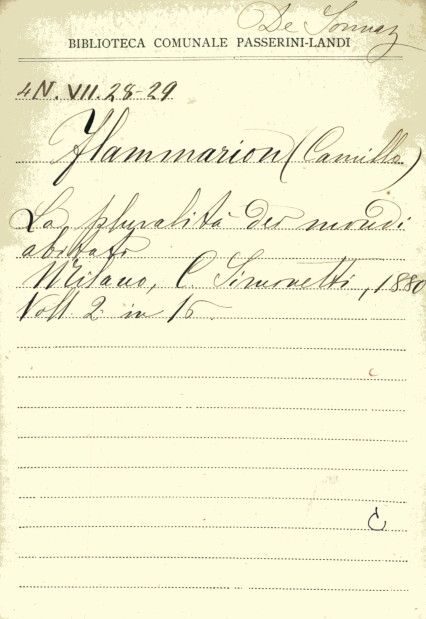 De Sonnaz
BIBLIOTECA COMUNALE PASSERINI-LANDI
4N. VII. 28-29
Flammarion (Camillo)
La pluralità dei mondi
abitati
Milano, C. Simonetti, 1880
Voll. 2 in 16.
c
C